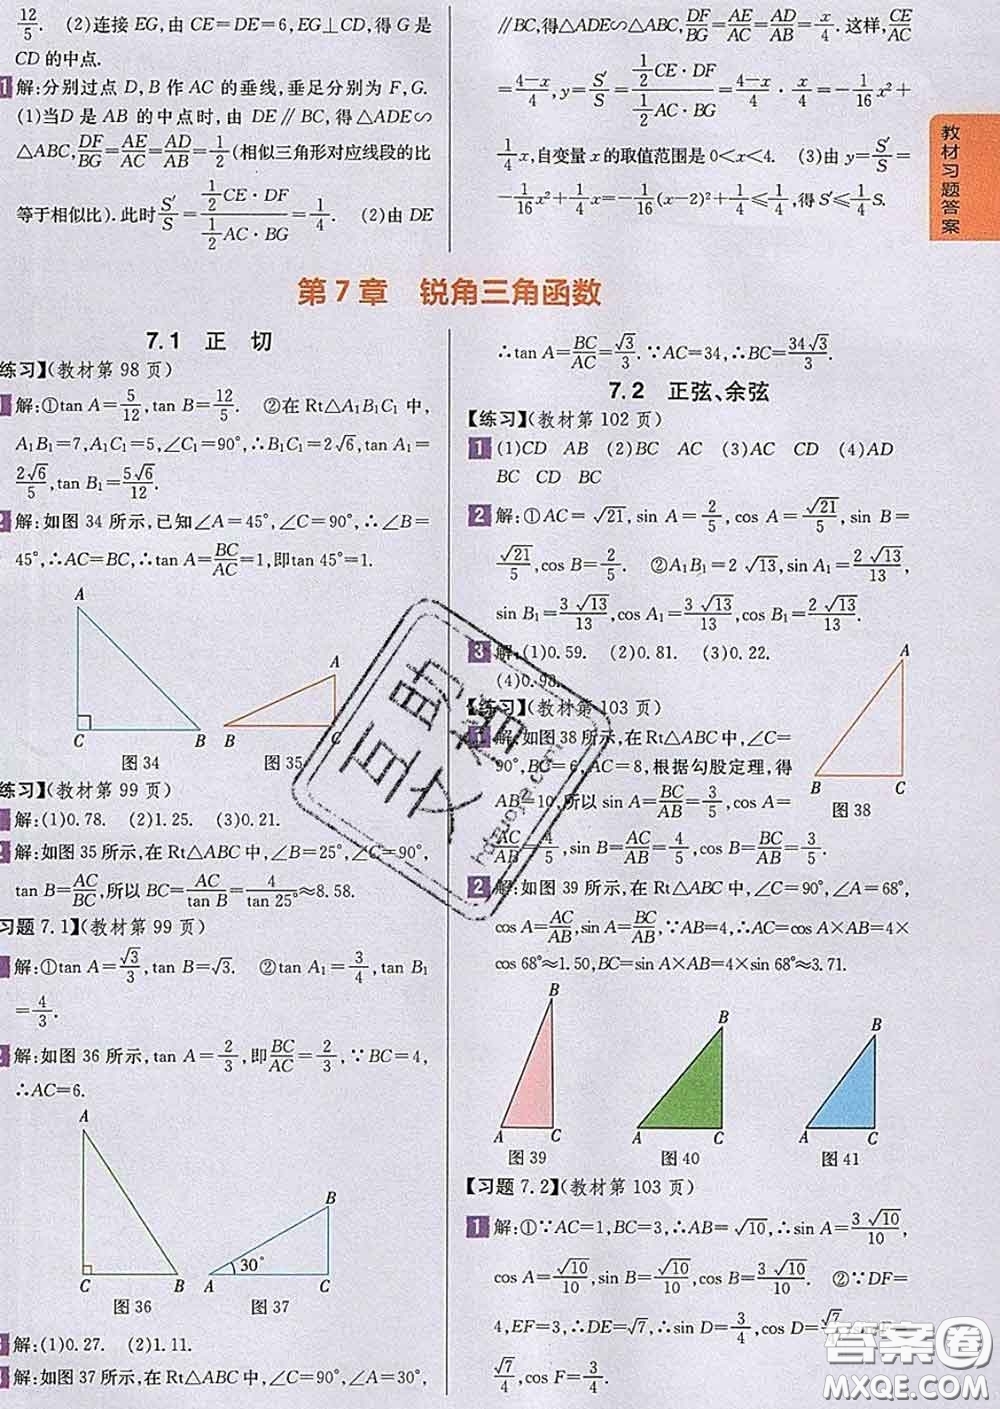 12/5. (2)连接 EG,由 CE=DE=6,EG⊥CD,得 G 是
CD 的中点.
1 解:分别过点 D,B 作 AC 的垂线,垂足分别为 F,G.
(1)当D 是 AB 的中点时,由 DE∥BC,得△ADE∽
△ABC,DF/BG=AE/AC=AD/AB=1/2(相似三角形对应线段的比
等于相似比).此时S′/S=(1/2CE·DF)/(1/2AC·BG)=1/4. (2)由 DE
∥BC,得△ADE∽△ABC,DF/BG=AE/AC=AD/AB=x/4.这样,CE/AC
=(4-x)/4,y=S′/S=(1/2CE·DF)/(1/2AC·BG)=(4-x)/4·x/4=-1/16x²+
1/4x,自变量 x 的取值范围是 0<x<4. (3)由 y=S′/S=
-1/16x²+1/4x=-1/16(x-2)²+1/4≤1/4,得 S′≤1/4S.
教材习题答案
第 7 章 锐角三角函数
7.1 正 切
练习】(教材第 98 页)
1 解:①tan A=5/12,tan B=12/5. ②在 Rt△A₁B₁C₁ 中,
A₁B₁=7,A₁C₁=5,∠C₁=90°,∴B₁C₁=2√6,tan A₁=
2√6/5,tan B₁=5√6/12.
2 解:如图 34 所示,已知∠A=45°,∠C=90°,∴∠B=
45°,∴AC=BC,∴tan A=BC/AC=1,即tan 45°=1.
A
C B
图 34
A
B C
图 35
练习】(教材第 99 页)
解:(1)0.78. (2)1.25. (3)0.21.
2 解:如图 35 所示,在 Rt△ABC 中,∠B=25°,∠C=90°,
tan B=AC/BC,所以 BC=AC/tan B=4/tan 25°≈8.58.
习题 7.1】(教材第 99 页)
解:①tan A=√3/3,tan B=√3. ②tan A₁=3/4,tan B₁
=4/3.
2 解:如图 36 所示,tan A=2/3,即BC/AC=2/3,∵BC=4,
∴AC=6.
A
C B
图 36
B
A 30° C
图 37
解:(1)0.27. (2)1.11.
解:如图 37 所示,在 Rt△ABC 中,∠C=90°,∠A=30°,
∴tan A=BC/AC=√3/3.∵AC=34,∴BC=34√3/3.
7.2 正弦、余弦
【练习】(教材第 102 页)
1 (1)CD AB (2)BC AC (3)AC CD (4)AD
BC CD BC
2 解:①AC=√21,sin A=2/5,cos A=√21/5,sin B=
√21/5,cos B=2/5. ②A₁B₁=2√13,sin A₁=2√13/13,
sin B₁=3√13/13,cos A₁=3√13/13,cos B₁=2√13/13.
3 解:(1)0.59. (2)0.81. (3)0.22.
(4)0.98.
【练习】(教材第 103 页)
1 解:如图 38 所示,在 Rt△ABC 中,∠C=
90°,BC=6,AC=8,根据勾股定理,得
AB=10,所以 sin A=BC/AB=3/5,cos A=
AC/AB=4/5,sin B=AC/AB=4/5,cos B=BC/AB=3/5.
A
B C
图 38
2 解:如图 39 所示,在 Rt△ABC 中,∠C=90°,∠A=68°,
cos A=AC/AB,sin A=BC/AB,∵AB=4,∴AC=cos A×AB=4×
cos 68°≈1.50,BC=sin A×AB=4×sin 68°≈3.71.
B
A C
图 39
B
A C
图 40
B
A C
图 41
【习题 7.2】(教材第 103 页)
1 解:①∵AC=1,BC=3,∴AB=√10,∴sin A=3√10/10,
cos A=√10/10,sin B=√10/10,cos B=3√10/10. ②∵DF=
4,EF=3,∴DE=√7,∴sin D=3/4,cos D=√7/4,
√7/4,cos F=3/4.
答案圈
MXQE.COM
hdzuoye.com